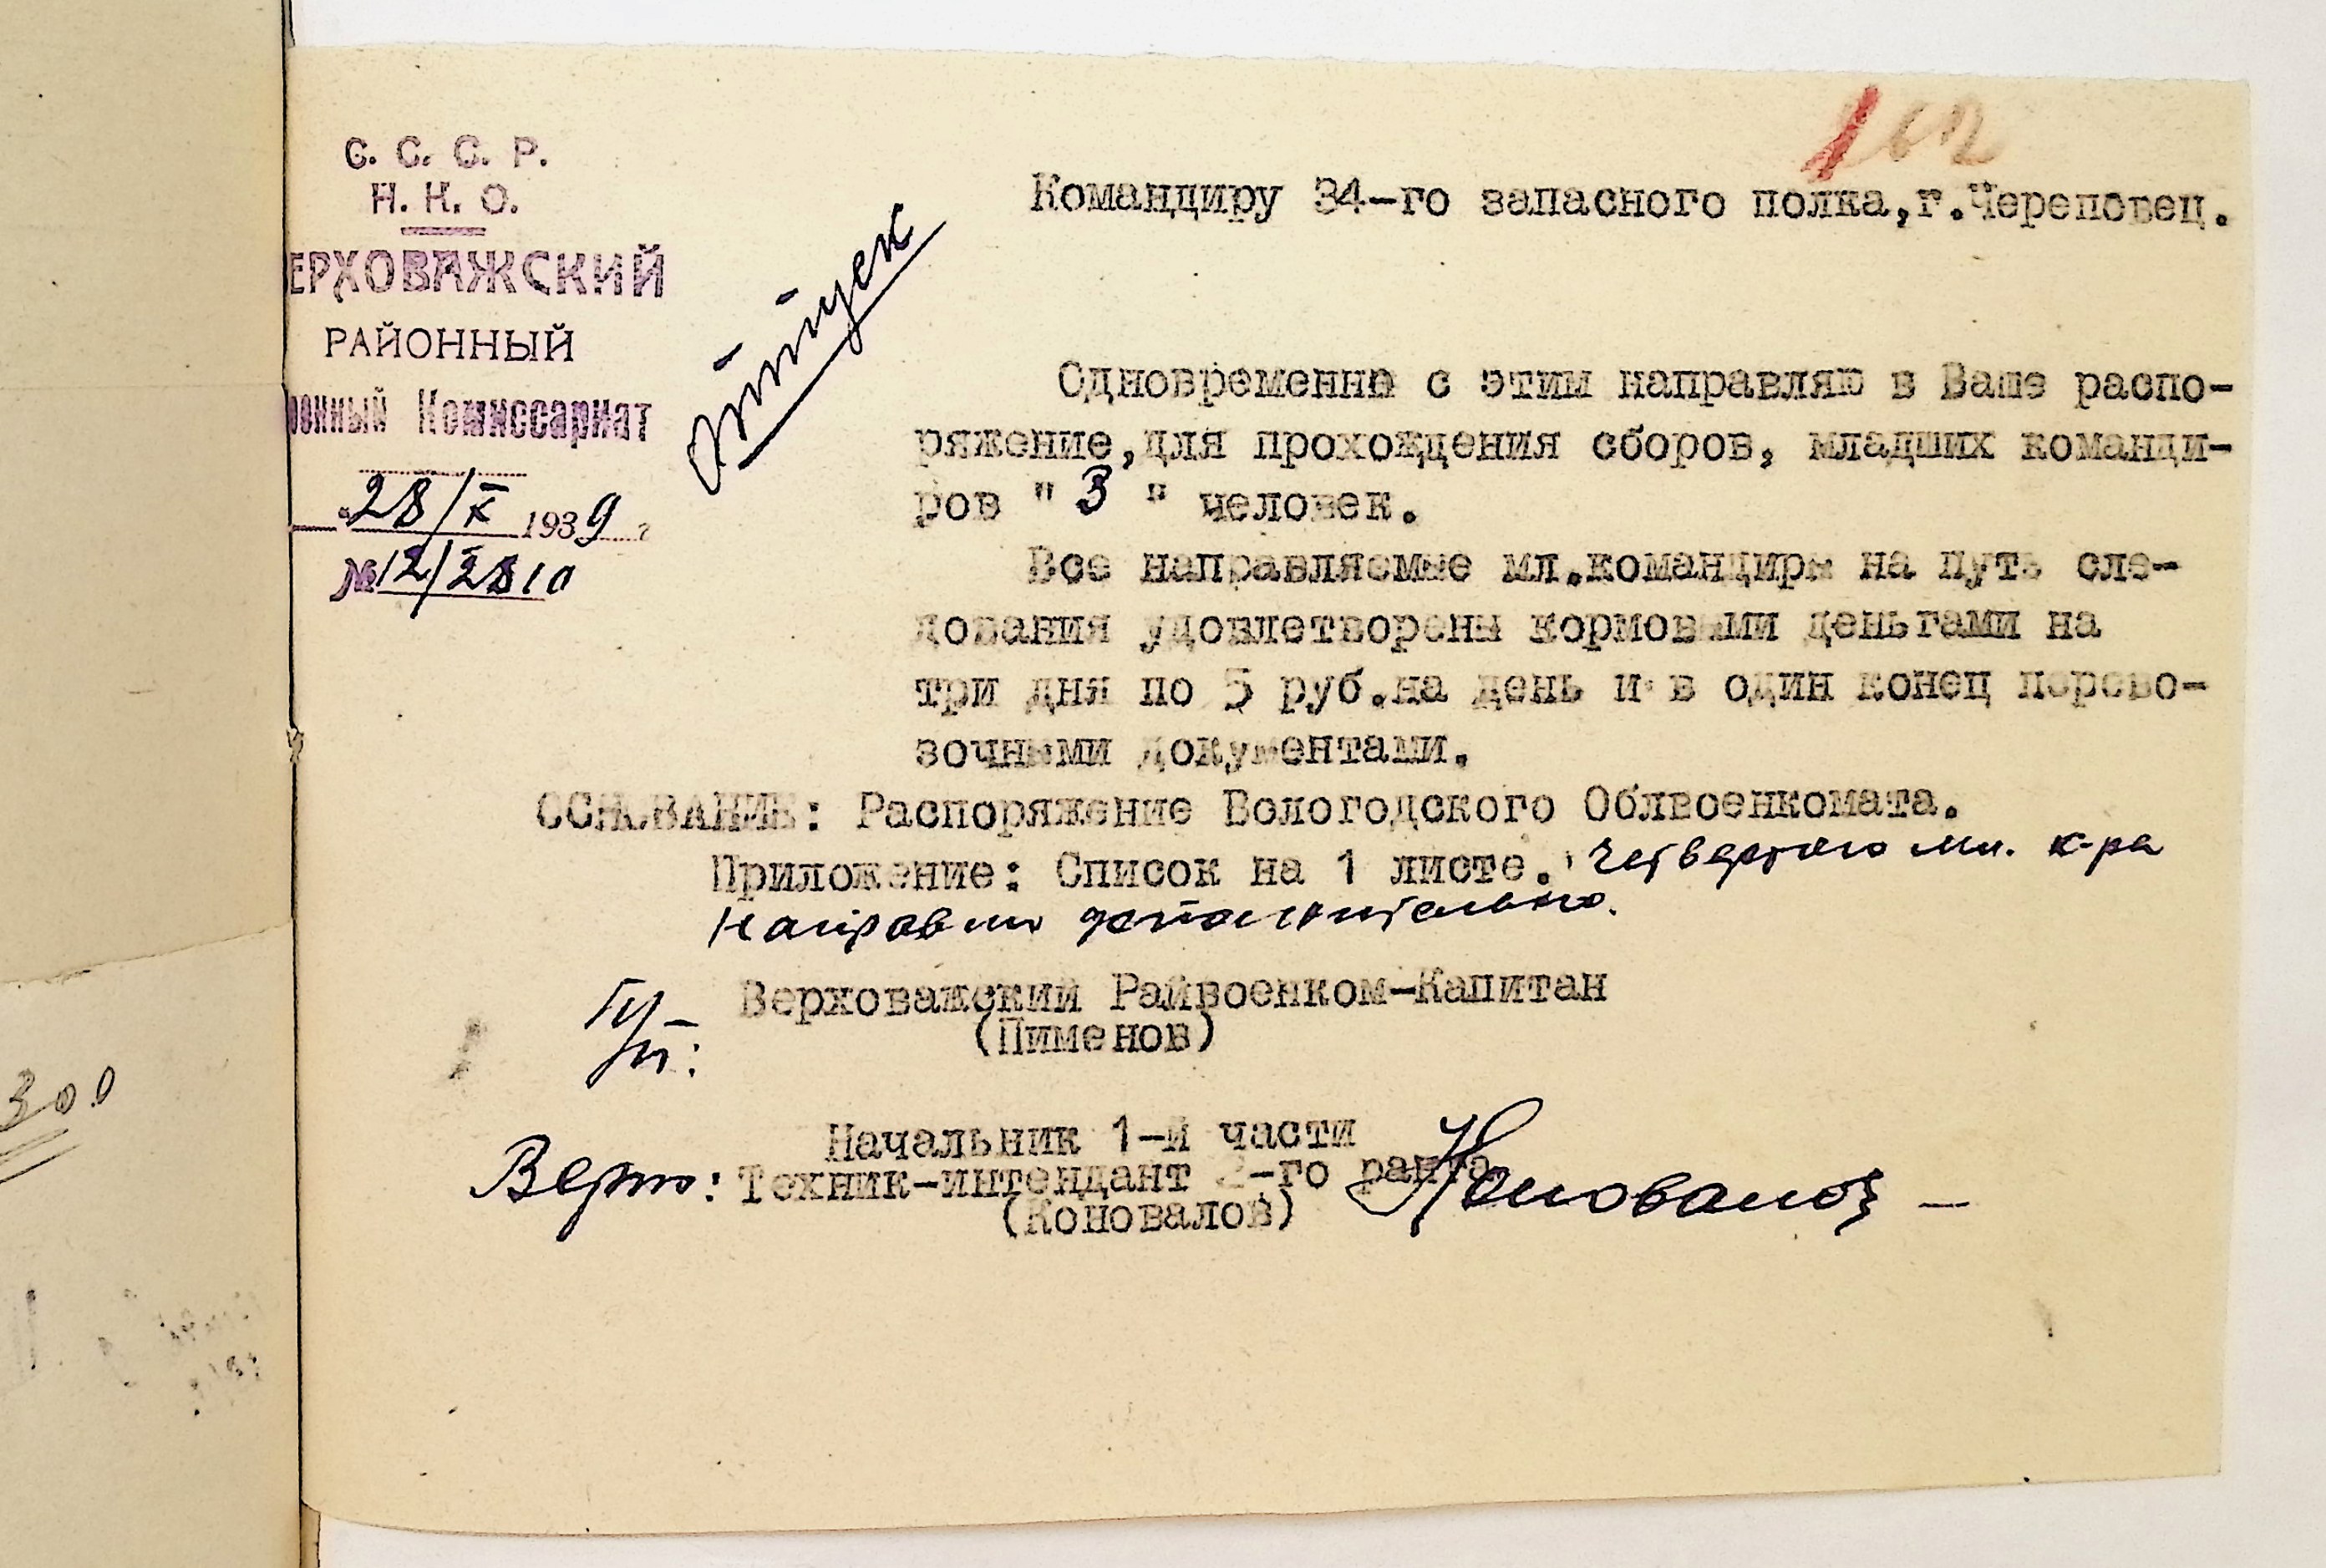 162
С. С. С. Р.
Н. К. О.
ЕРХОВАЖСКИЙ
РАЙОННЫЙ
оенный Комиссариат
"28/X 1939 г
№12/2810
Отпуск
Командиру 34-го запасного полка,г.Череповец.
Одновременно с этим направляю в Ваше распо-
ряжение,для прохождения сборов, младших команди-
ров " 3 " человек.
Все направляемые мл.командиры на путь сле-
дования удовлетворены кормовыми деньгами на
три дня по 5 руб.на день и в один конец перево-
зочными документами.
ОСНОВАНИЕ: Распоряжение Вологодского Облвоенкомата.
Приложение: Список на 1 листе. Четвертого мл. к-ра
направлю дополнительно.
Верховажский Райвоенком-Капитан
(Пименов)
Начальник 1-й части
Верно: Техник-интендант 2-го ранга Коновалов
(Коновалов)
300